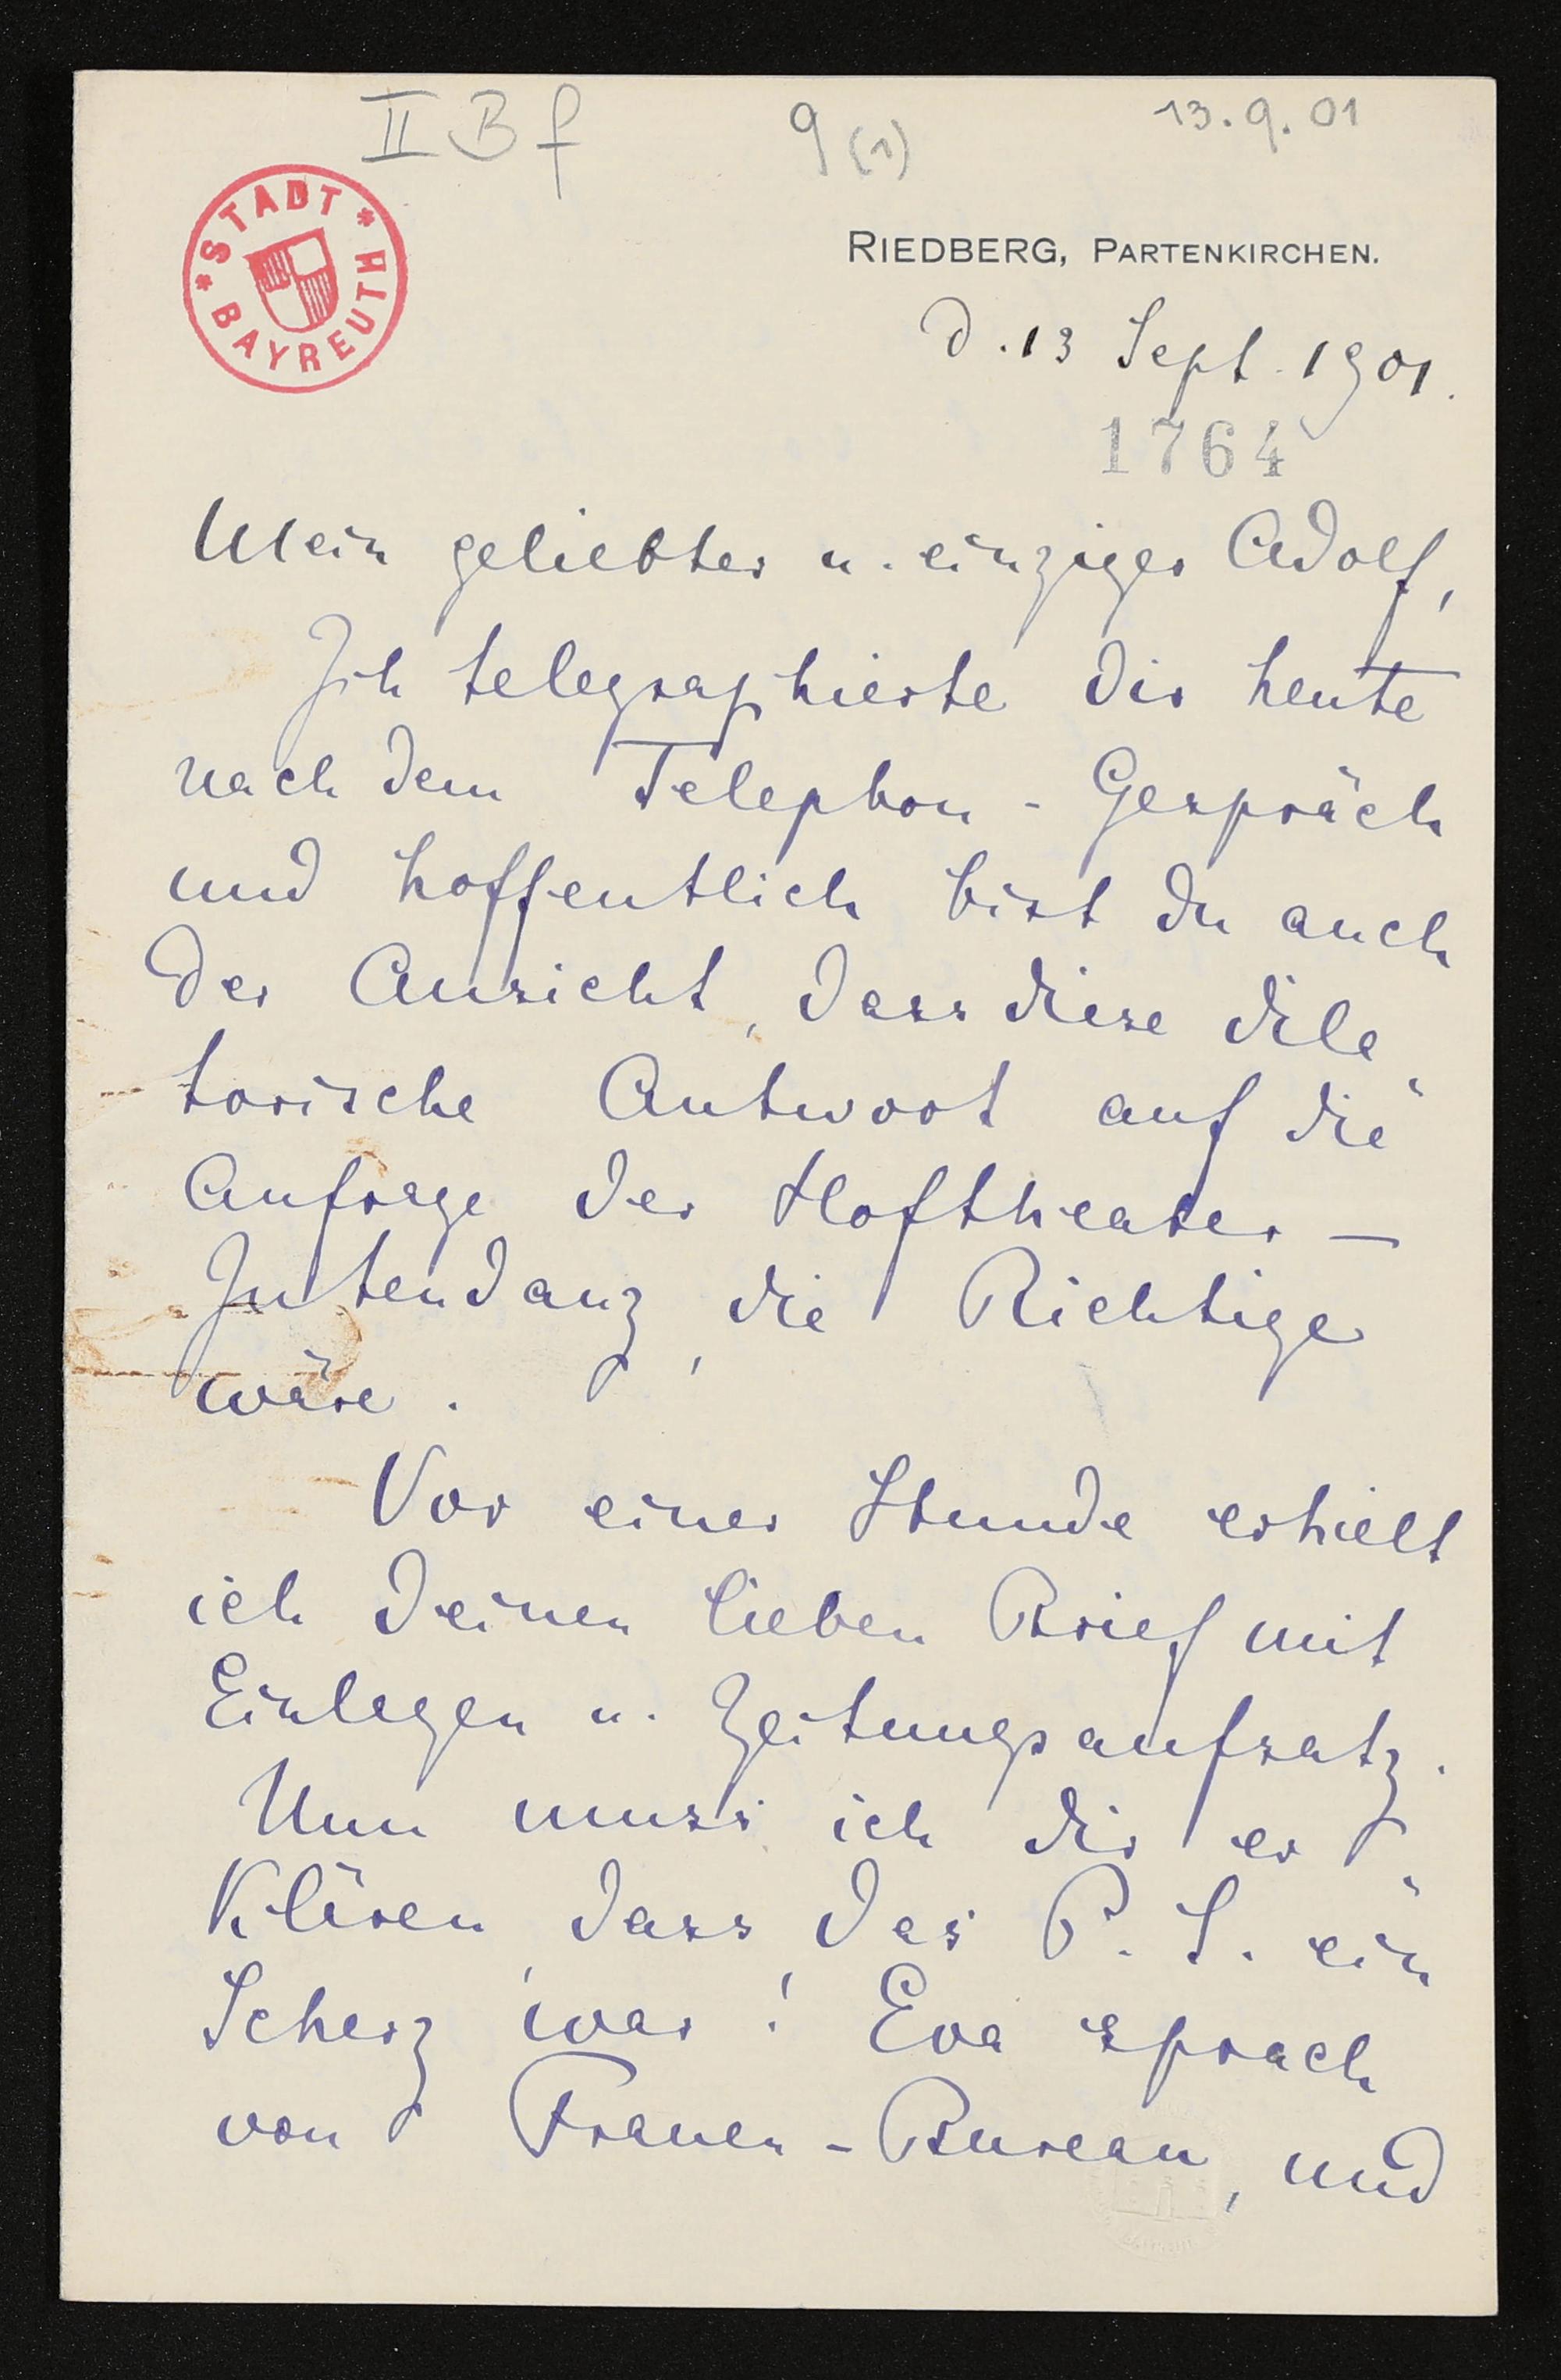 II B f 9 (1) 13.9.01
STADT BAYREUTH
RIEDBERG, PARTENKIRCHEN.
d. 13 Sept. 1901.
1764
Mein geliebter u. einziger Adolf,
Ich telegraphierte dir heute
nach dem Telephon-Gespräch
und hoffentlich bist du auch
der Ansicht, dass diese dila-
torische Antwort auf die
Anfrage der Hoftheater-
Intendanz, die Richtige
wäre.
Vor einer Stunde erhielt
ich deinen lieben Brief mit
Einlagen u. Zeitungsaufsatz.
Nun muss ich dir er-
klären, dass das P. S. ein
Scherz war! Eva sprach
von Frauen-Bureau, und